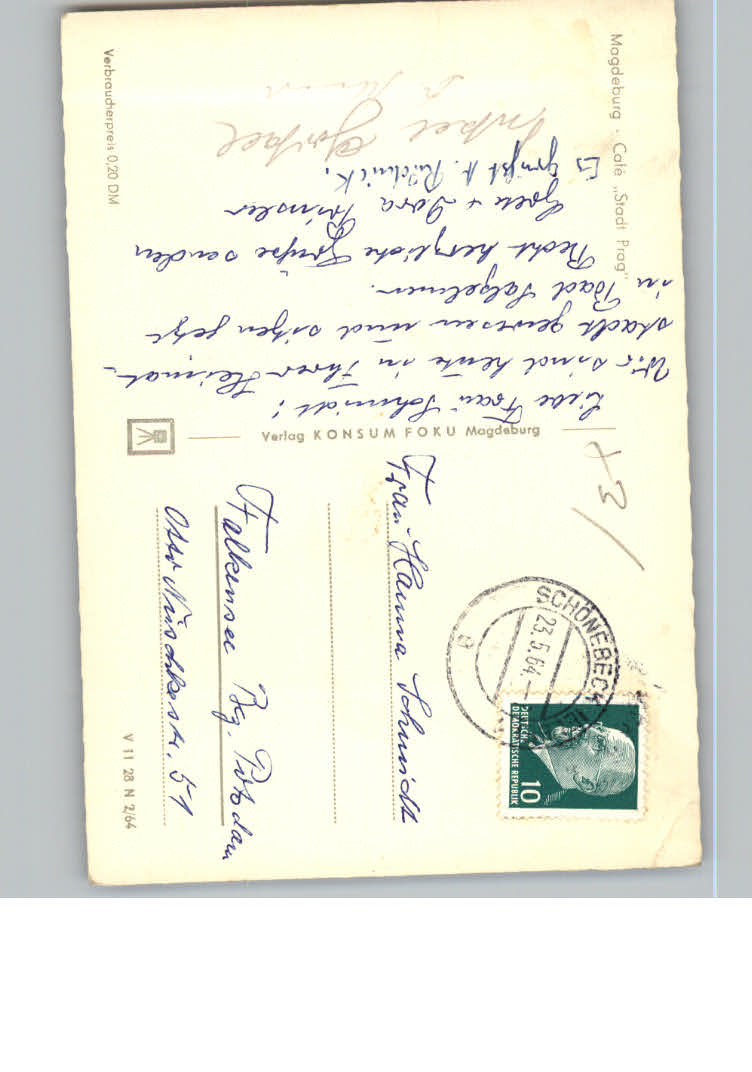 Magdeburg · Café „Stadt Prag"
Liebe Frau Schmidt!
Wir sind heute in Ihrer Heimat-
stadt gewesen und sitzen jetzt
in Bad Salzelmen.
Recht herzliche Grüße senden
+ Dora
Es grüßt
Verbraucherpreis 0,20 DM
Verlag KONSUM FOKU Magdeburg
+3/
SCHÖNEBECK
23.5.64.-
DEUTSCHE
DEMOKRATISCHE REPUBLIK
10
Frau Hanna Schmidt
Falkensee Bz. Potsdam
Otto Nuschkestr. 51
V 11 28 N 2/64